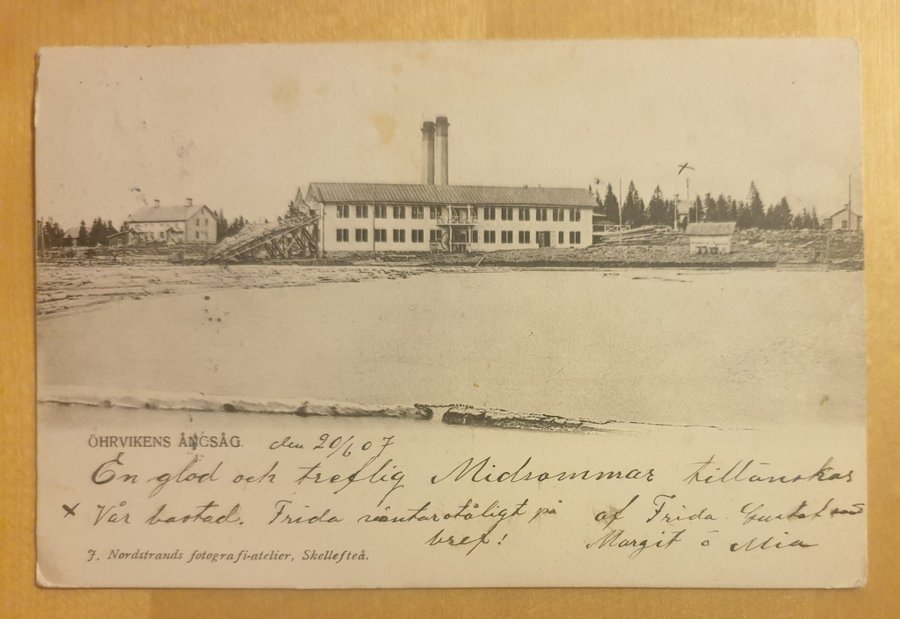 ÖHRVIKENS ÅNGSÅG. den 20/6 07
En glad och treflig Midsommar tillönskas
x Vår bostad. Frida väntar otåligt på af Frida. Gustaf
bref! Margit o Mia
J. Nordstrands fotografi-atelier, Skellefteå.